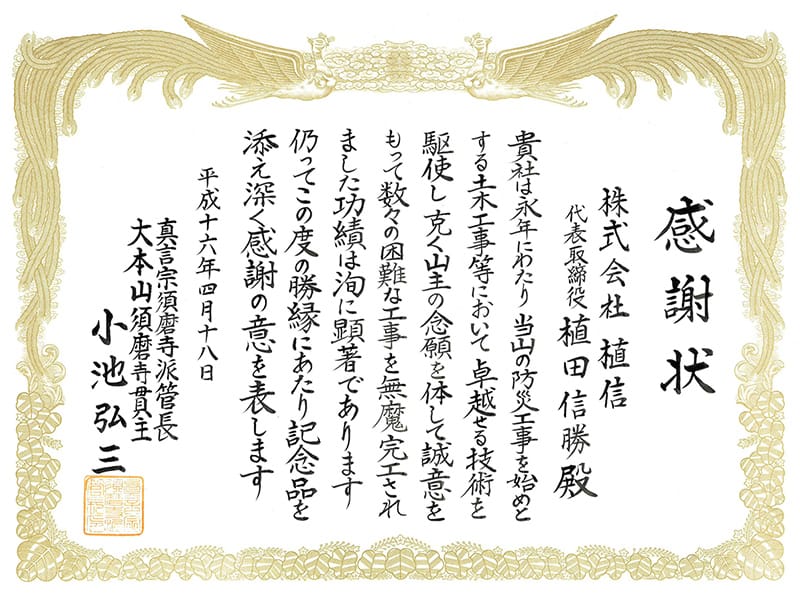 感謝状
株式会社 植信
代表取締役 植田信勝 殿
貴社は永年にわたり 当山の防災工事を始めと
する土木工事等において 卓越せる技術を
駆使し 克く山主の念願を体して誠意を
もって数々の困難な工事を無魔完工され
ました功績は洵に顕著であります
仍ってこの度の勝縁にあたり記念品を
添え深く感謝の意を表します
平成十六年四月十八日
真言宗須磨寺派管長
大本山須磨寺貫主
小池弘三